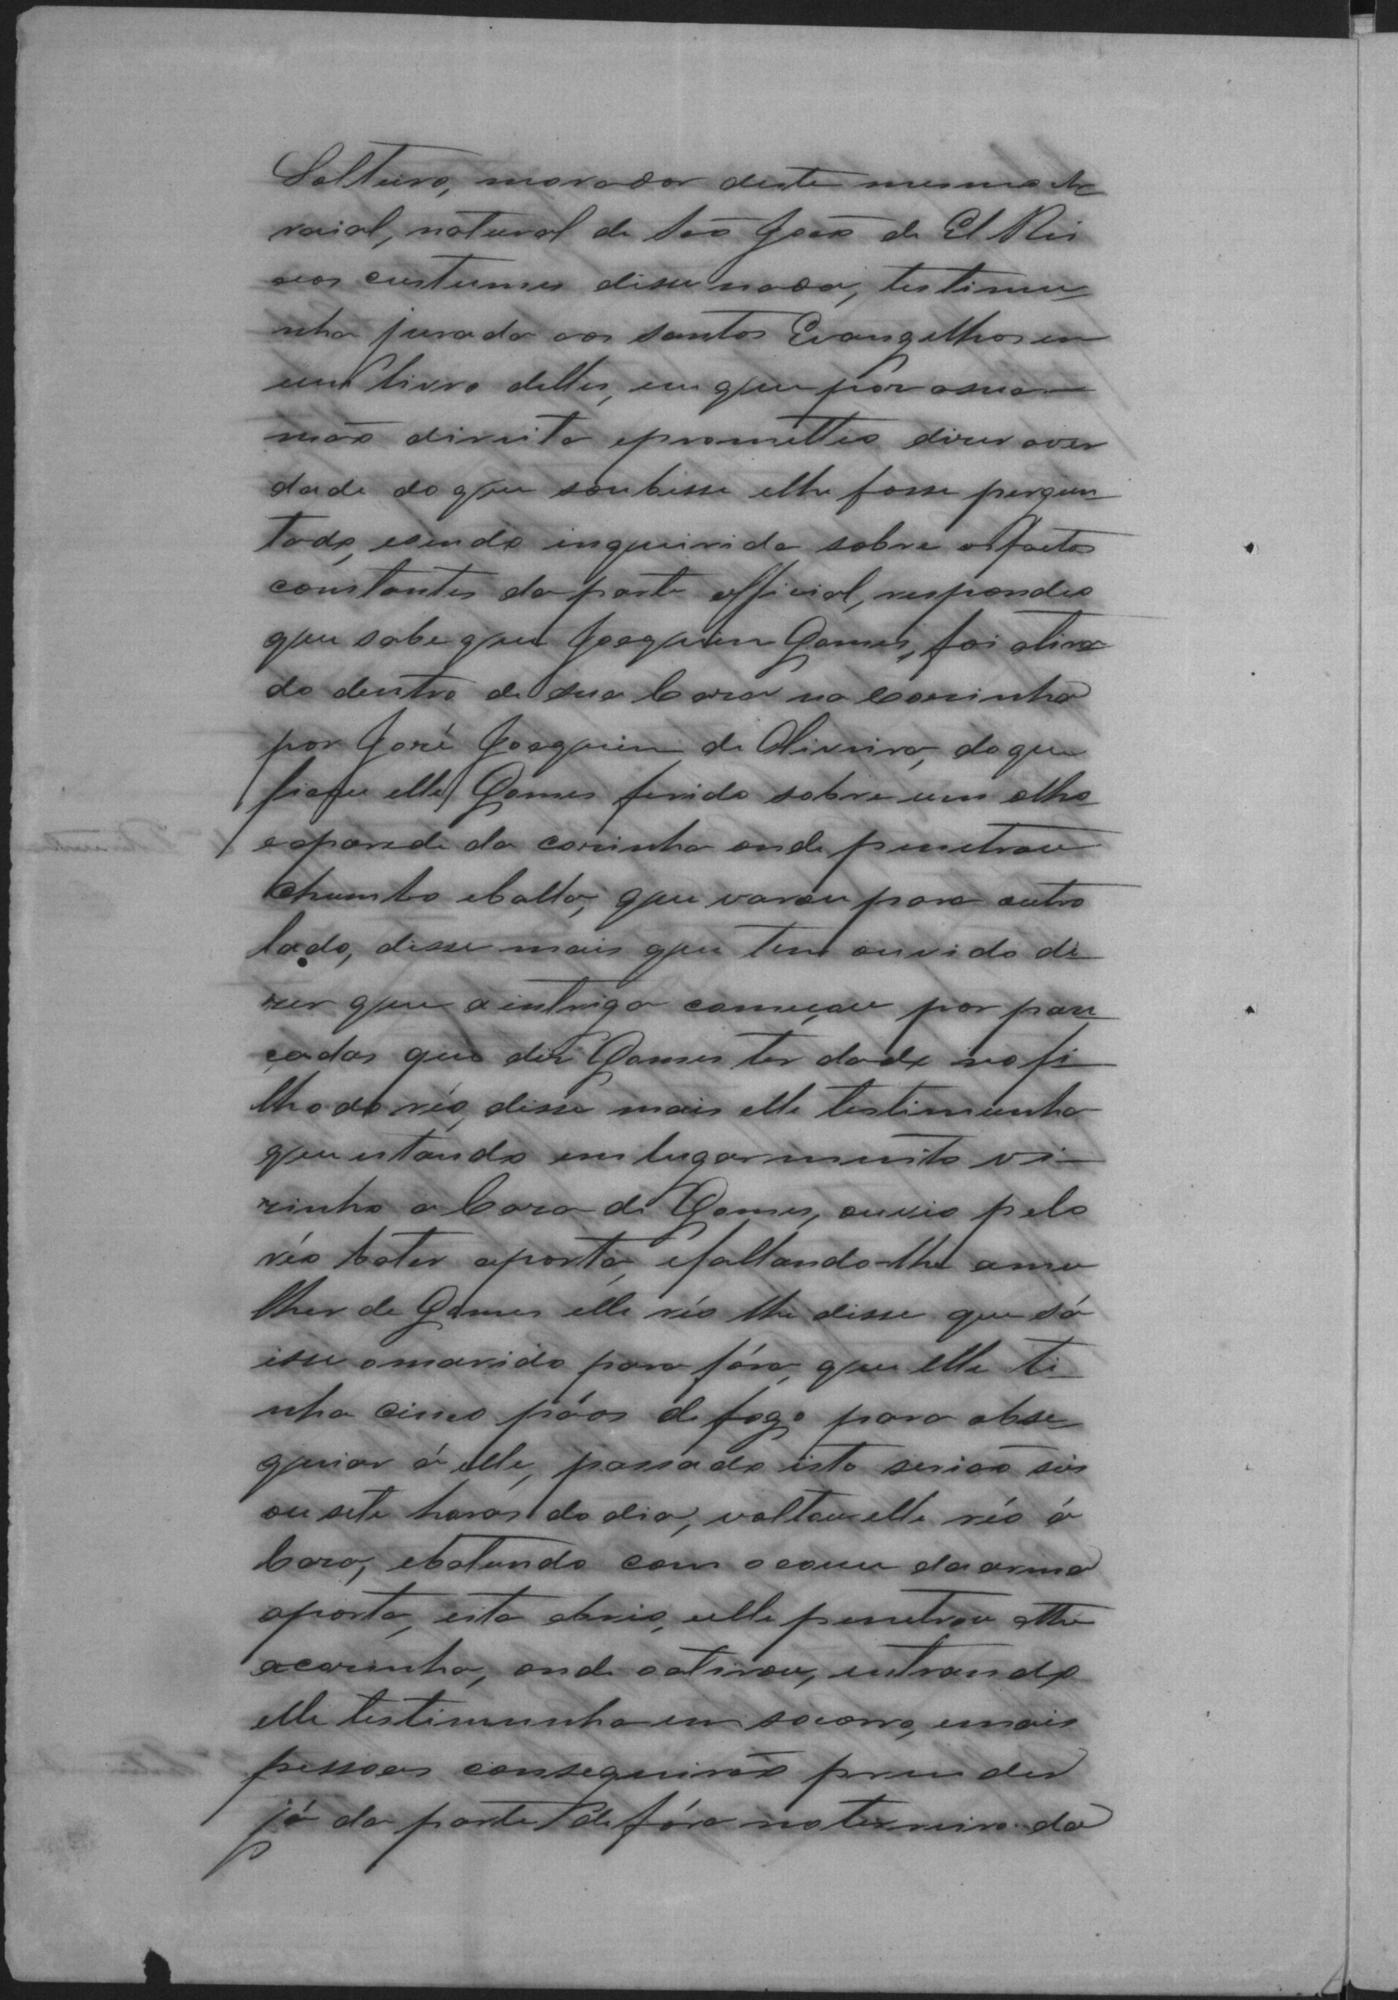 Solteiro, morador deste mesmo Ar
raial, natural de São João de El Rei
aos custumes disse nada, testimu
nha jurada aos santos Evangelhos em
um livro delles, em que por a sua
mão direita eprometteo dizer aver
dade doque soubesse elhe fosse pergun
tado, esendo inquirida sobre osfactos
constantes daparte official, respondeo
que sabe que Joaquim Gomes, foi atira
do dentro de sua Caza na Cosinha
por José Joaquim de Oliveira, doque
ficou elle Gomes ferido sobre um olho
eaparede da cosinha onde penetrou
chumbo eballa, que varou para outro
lado, disse mais que tem ouvido di
zer que aintriga começou por pan
cadas que diz Gomes ter dado nofi
lho do réo, disse mais elle testimunha
que estando em lugar muito vi
zinho a Caza de Gomes, ouvio pelo
réo bater aporta, efallando-lhe amu
lher de Gomes elle réo lhe disse que só
isse omarido para fóra, que elle ti
nha cinco páos de fogo para obse
quiar á elle, passado isto serião seis
ou sete horas do dia, voltou elle réo á
Caza, ebatendo com ocouce da arma
aporta, esta abrio, eelle penetrou athe
acosinha, onde oatirou, entrando
elle testimunha em socorro, emais
pessoas conseguirão prender
já da parte de fóra noterreiro da